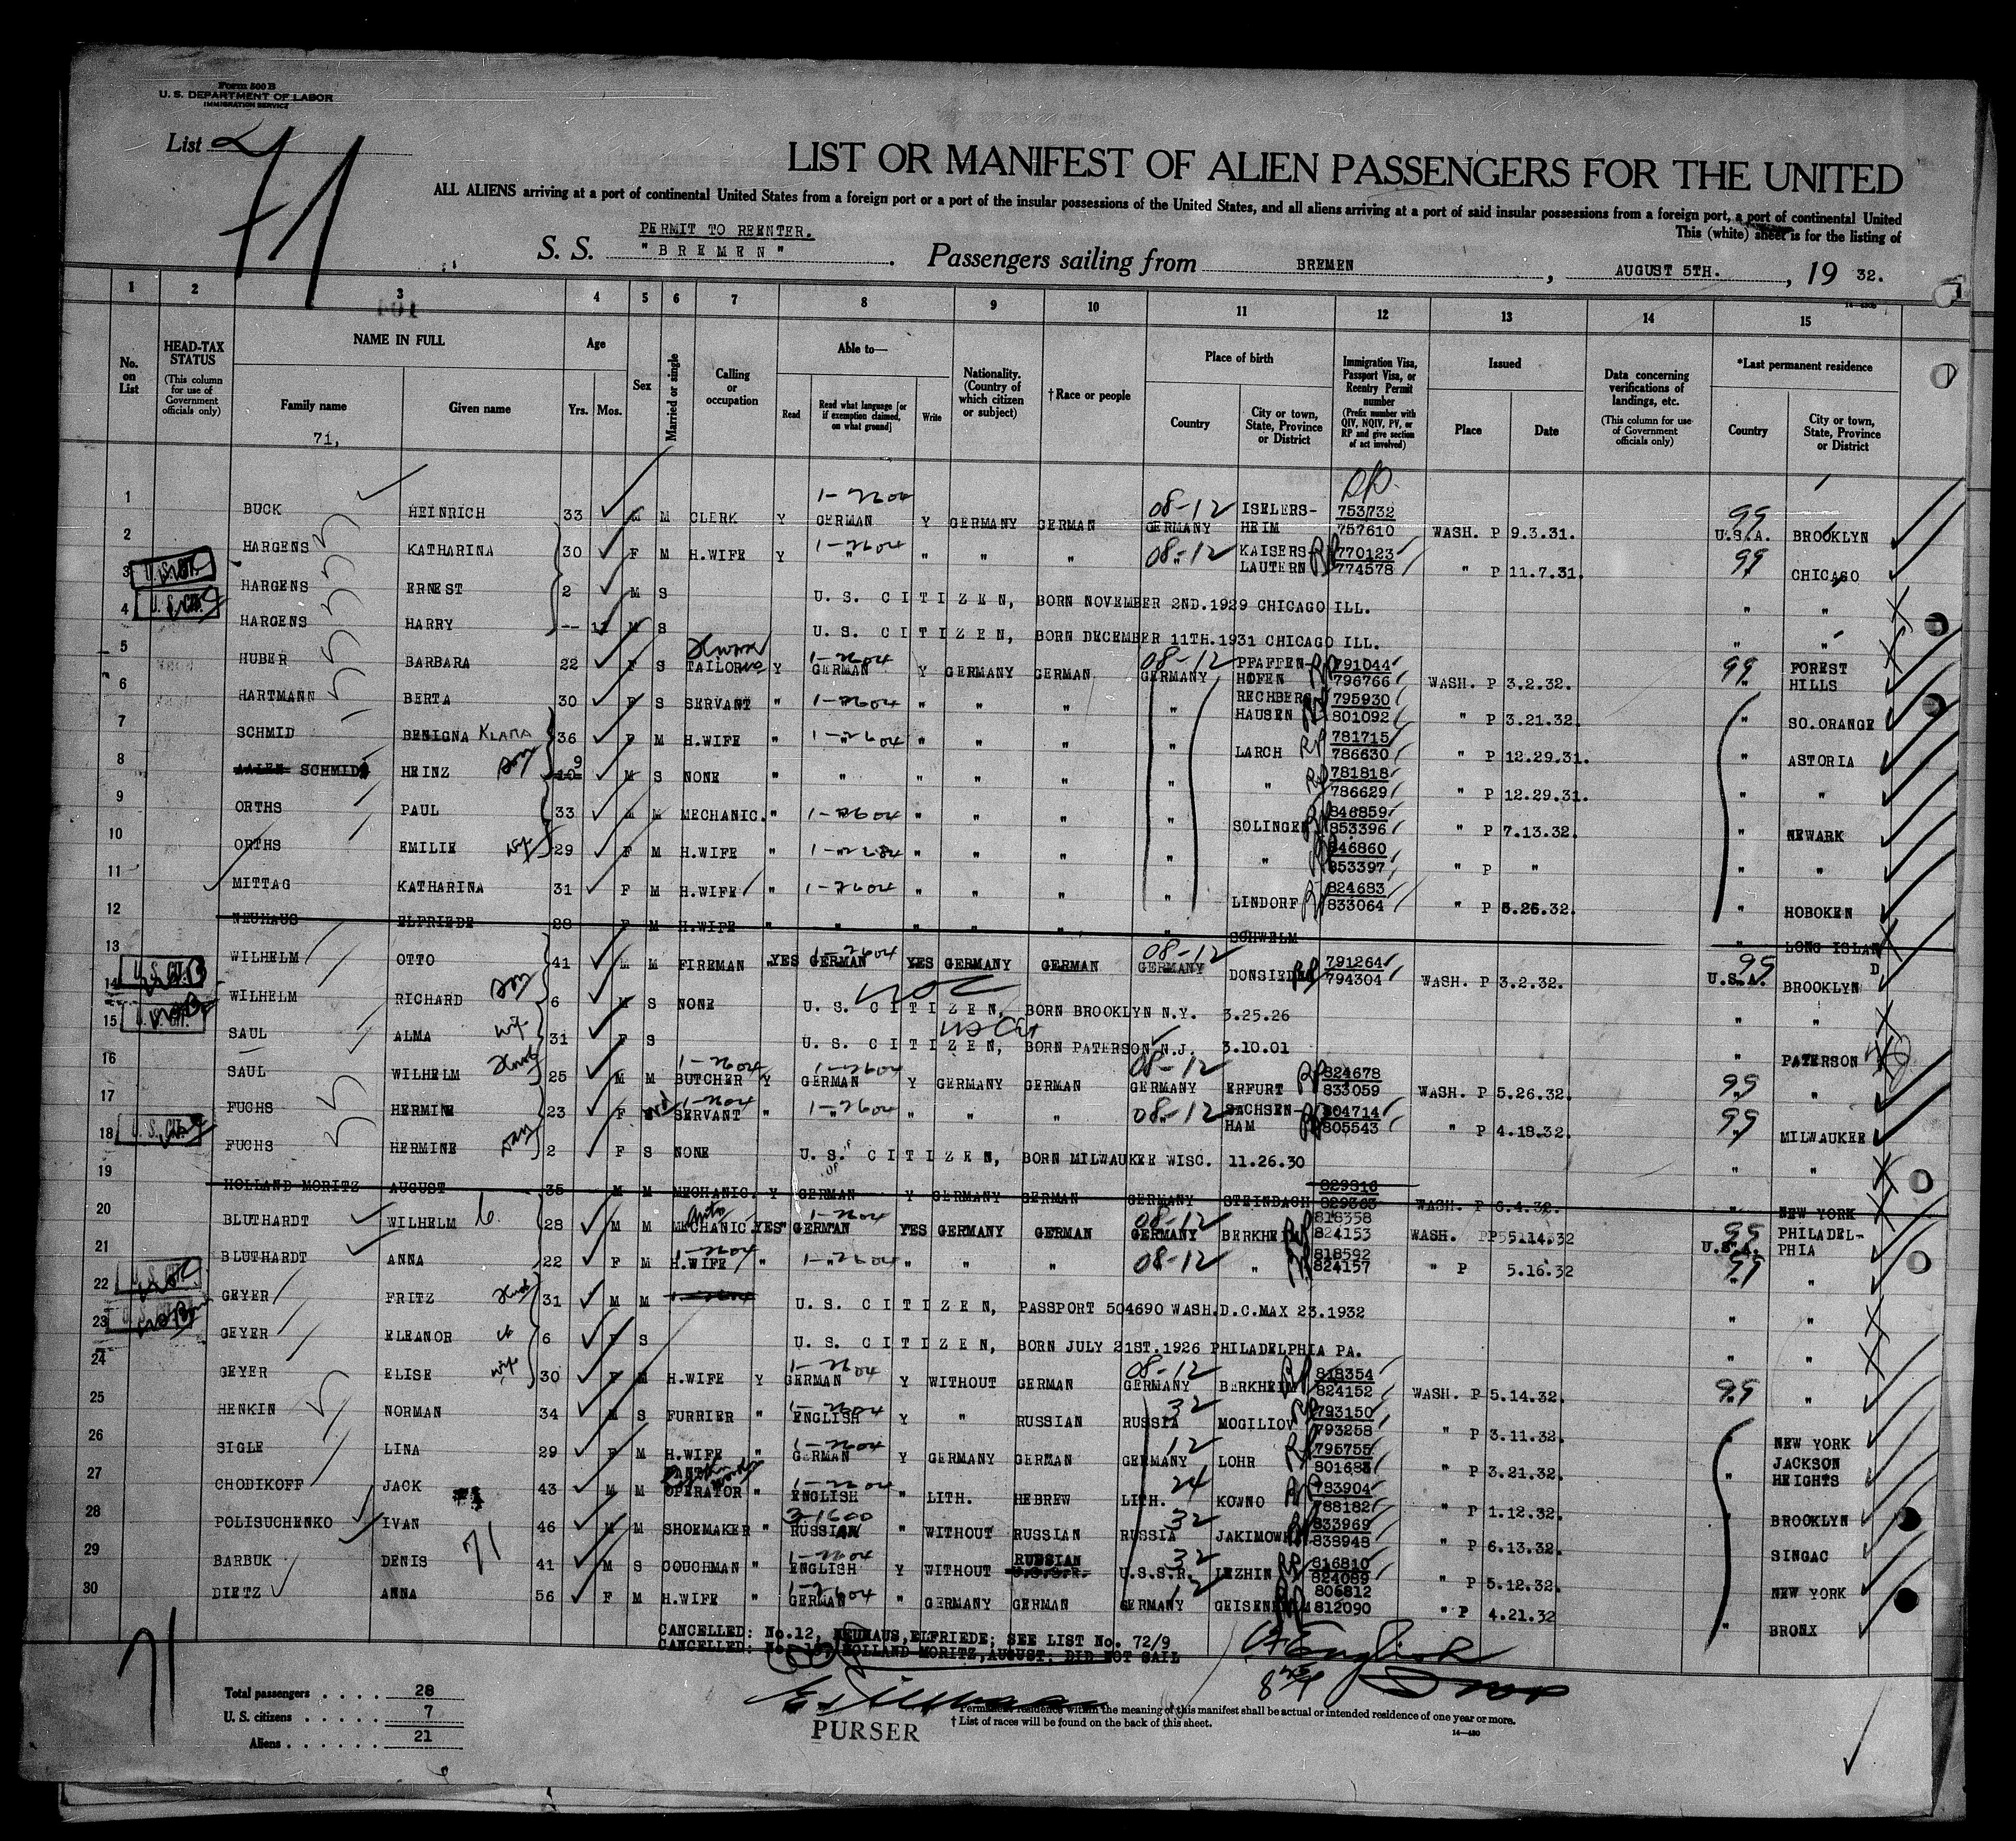 Form 500 B
U. S. DEPARTMENT OF LABOR
IMMIGRATION SERVICE
List 71
LIST OR MANIFEST OF ALIEN PASSENGERS FOR THE UNITED
ALL ALIENS arriving at a port of continental United States from a foreign port or a port of the insular possessions of the United States, and all aliens arriving at a port of said insular possessions from a foreign port, a port of continental United
This (white) sheet is for the listing of
PERMIT TO REENTER.
S. S. "BREMEN" Passengers sailing from BREMEN, AUGUST 5TH., 19 32.
1 2 3 4 5 6 7 8 9 10 11 12 13 14 15
No. on List
HEAD-TAX STATUS (This column for use of Government officials only)
NAME IN FULL
Family name Given name
71,
Age Yrs. Mos.
Sex
Married or single
Calling or occupation
Able to— Read Read what language [or if exemption claimed, on what ground] Write
Nationality. (Country of which citizen or subject)
†Race or people
Place of birth Country City or town, State, Province or District
Immigration Visa, Passport Visa, or Reentry Permit number (Prefix number with QIV, NQIV, PV, or RP and give section of act involved)
Issued Place Date
Data concerning verifications of landings, etc. (This column for use of Government officials only)
*Last permanent residence Country City or town, State, Province or District
1 BUCK HEINRICH 33 M M CLERK Y 1-2604 GERMAN Y GERMANY GERMAN 08-12 GERMANY ISELERS- HEIM RP 753732 757610 WASH. P 9.3.31. 99 U.S.A. BROOKLYN
2 HARGENS KATHARINA 30 F M H.WIFE Y 1-2604 " " " " 08-12 " KAISERS- LAUTERN RP 770123 774578 " P 11.7.31. 99 CHICAGO
3 U.S. CIT. HARGENS ERNEST 2 M S U. S. CITIZEN, BORN NOVEMBER 2ND.1929 CHICAGO ILL. " "
4 U.S. CIT. HARGENS HARRY -- 11 M S U. S. CITIZEN, BORN DECEMBER 11TH.1931 CHICAGO ILL. " "
5 HUBER BARBARA 22 F S TAILOR Y 1-2604 GERMAN Y GERMANY GERMAN 08-12 GERMANY PFAFFEN- HOFEN RP 791044 796766 WASH. P 3.2.32. 99 " FOREST HILLS
6 HARTMANN BERTA 30 F S SERVANT " 1-2604 " " " " RECHBERG HAUSEN 795930 801092 " P 3.21.32. " SO.ORANGE
7 SCHMID BENIGNA KLARA 36 F M H.WIFE " 1-2604 " " " " LARCH RP 781715 786630 " P 12.29.31. " ASTORIA
8 AALEN SCHMID HEINZ Son 10 9 M S NONE " " " " " " " RP 781818 786629 " P 12.29.31. " "
9 ORTHS PAUL 33 M M MECHANIC. " 1-2604 " " " " SOLINGEN RP 846859 853396 " P 7.13.32. " NEWARK
10 ORTHS EMILIE wife 29 F M H.WIFE " 1-2604 " " " " " 846860 853397 " P " " "
11 MITTAG KATHARINA 31 F M H.WIFE " 1-2604 " " " " LINDORF RP 824683 833064 " P 5.26.32. " HOBOKEN
12 NEUHAUS ELFRIEDE 28 F M H.WIFE " " " " " " SCHWELM " LONG ISLAND
13 WILHELM OTTO 41 M M FIREMAN YES 1-2604 GERMAN YES GERMANY GERMAN 08-12 GERMANY 791264 794304 WASH. P 3.2.32. 99 U.S.A. BROOKLYN
14 U.S. CIT. WILHELM RICHARD Son 6 M S NONE U. S. CITIZEN, BORN BROOKLYN N.Y. 3.25.26 " "
15 U.S. CIT. SAUL ALMA wife 31 F S US Cit U. S. CITIZEN, BORN PATERSON N.J. 3.10.01 " PATERSON
16 SAUL WILHELM Husb 25 M M 1-2604 BUTCHER Y 1-2604 GERMAN Y GERMANY GERMAN 08-12 GERMANY ERFURT RP 824678 833059 WASH. P 5.26.32. 99 " "
17 FUCHS HERMINE 23 F 1-2604 SERVANT " 1-2604 " " " 08-12 SACHSEN- HAM RP 804714 805543 " P 4.18.32. 99 MILWAUKEE
18 U.S. CIT. FUCHS HERMINE 2 F S NONE U. S. CITIZEN, BORN MILWAUKEE WISC. 11.26.30 " "
19 HOLLAND MORITZ AUGUST 35 M M MECHANIC. Y GERMAN Y GERMANY GERMAN GERMANY STEINBACH 829316 829363 WASH. P 6.4.32. " NEW YORK
20 BLUTHARDT WILHELM 28 M M auto MECHANIC YES 1-2604 GERMAN YES GERMANY GERMAN 08-12 GERMANY BERKHEIM 818358 824153 WASH. 99 U.S.A. PHILADEL- PHIA
21 BLUTHARDT ANNA 22 F M 1-2604 H.WIFE " 1-2604 " " " 08-12 " 818592 824157 " P 5.16.32 99 "
22 U.S. CIT. GEYER FRITZ Husb 31 M M U. S. CITIZEN, PASSPORT 504690 WASH.D.C.MAX 23.1932 " "
23 U.S. CIT. GEYER ELEANOR 6 F S U. S. CITIZEN, BORN JULY 21ST.1926 PHILADELPHIA PA. " "
24 GEYER ELISE wife 30 F M H.WIFE Y 1-2604 GERMAN Y WITHOUT GERMAN 08-12 GERMANY BERKHEIM RP 818354 824152 WASH. P 5.14.32. 99 "
25 HENKIN NORMAN 34 M S FURRIER " 1-2604 ENGLISH Y " RUSSIAN 32 RUSSIA MOGILIOV 793150 793258 " P 3.11.32. " NEW YORK
26 SIGLE LINA 29 F M H.WIFE " 1-2604 GERMAN Y GERMANY GERMAN 12 GERMANY LOHR RP 795755 " P 3.21.32. " JACKSON HEIGHTS
27 CHODIKOFF JACK 43 M M OPERATOR " 1-2604 ENGLISH " LITH. HEBREW 24 LITH. KOWNO RP 783904 788182 " P 1.12.32. BROOKLYN
28 POLISUCHENKO IVAN 46 M M SHOEMAKER " 3-1600 RUSSIAN " WITHOUT RUSSIAN 32 RUSSIA 833969 838948 " P 6.13.32. SINGAC
29 BARBUK DENIS 71 41 M S COUCHMAN " 1-2604 ENGLISH Y WITHOUT RUSSIAN U.S.S.R. 32 U.S.S.R. LEZHIN RP 816810 824089 " P 5.12.32. NEW YORK
30 DIETZ ANNA 56 F M H.WIFE " 1-2604 GERMAN " GERMANY GERMAN 12 GERMANY 806812 812090 " P 4.21.32 " BRONX
CANCELLED: No.12, NEUHAUS,ELFRIEDE; SEE LIST No. 72/9
CANCELLED: No. 19, HOLLAND MORITZ,AUGUST; DID NOT SAIL
71
Total passengers . . . . 28
U. S. citizens . . . . . 7
Aliens . . . . . . 21
PURSER
* Permanent residence within the meaning of this manifest shall be actual or intended residence of one year or more.
† List of races will be found on the back of this sheet.
14—480